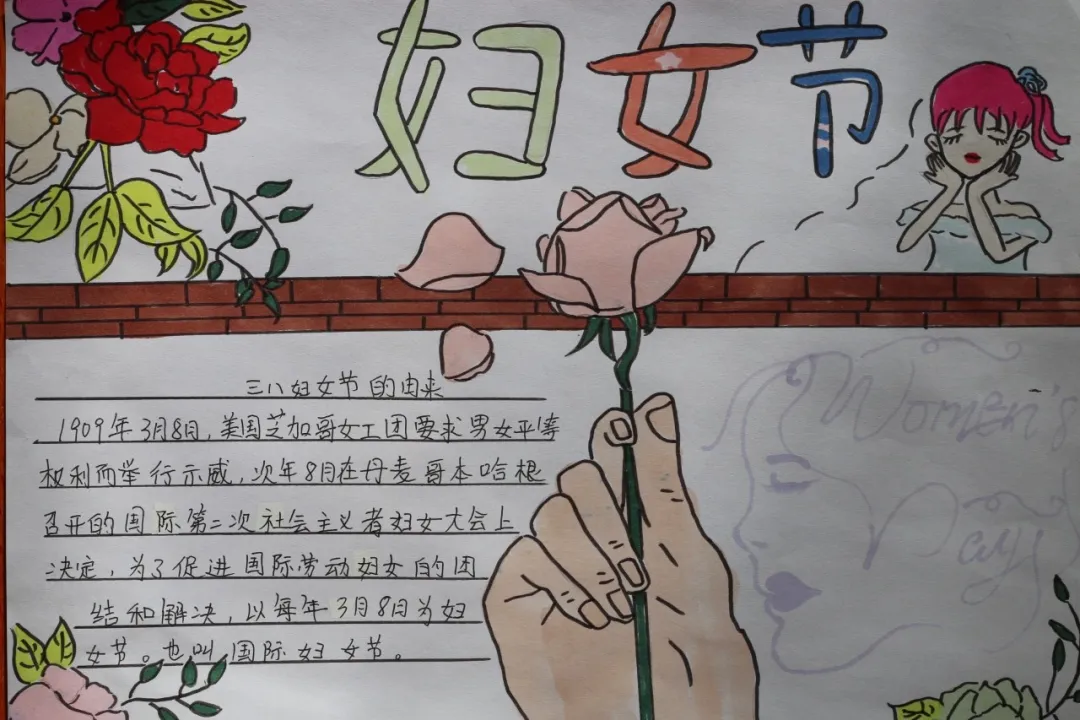 妇女节
三八妇女节的由来
1909年3月8日,美国芝加哥女工团要求男女平等
权利而举行示威,次年8月在丹麦哥本哈根
召开的国际第二次社会主义者妇女大会上
决定,为了促进国际劳动妇女的团
结和解决,以每年3月8日为妇
女节。也叫国际妇女节。
Women's
Day